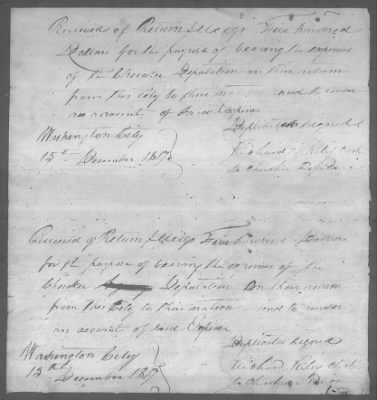 Received of Return J Meigs Five hundred
Dollars for the purpose of bearing the expenses
of the Cherokee Deputation on their return
from this City to their and to render
an account of said Expense
Duplicates signed
Washington City
15th December 1817
Richard Riley
to Cherokee
Received of Return J Meigs Five hundred Dollars
for the purpose of bearing the expenses of the
Cherokee Deputation on their return
from this City to their nation and to render
an account of said Expense
Duplicates signed
Washington City
15th December 1817
Richard Riley
to Cherokee